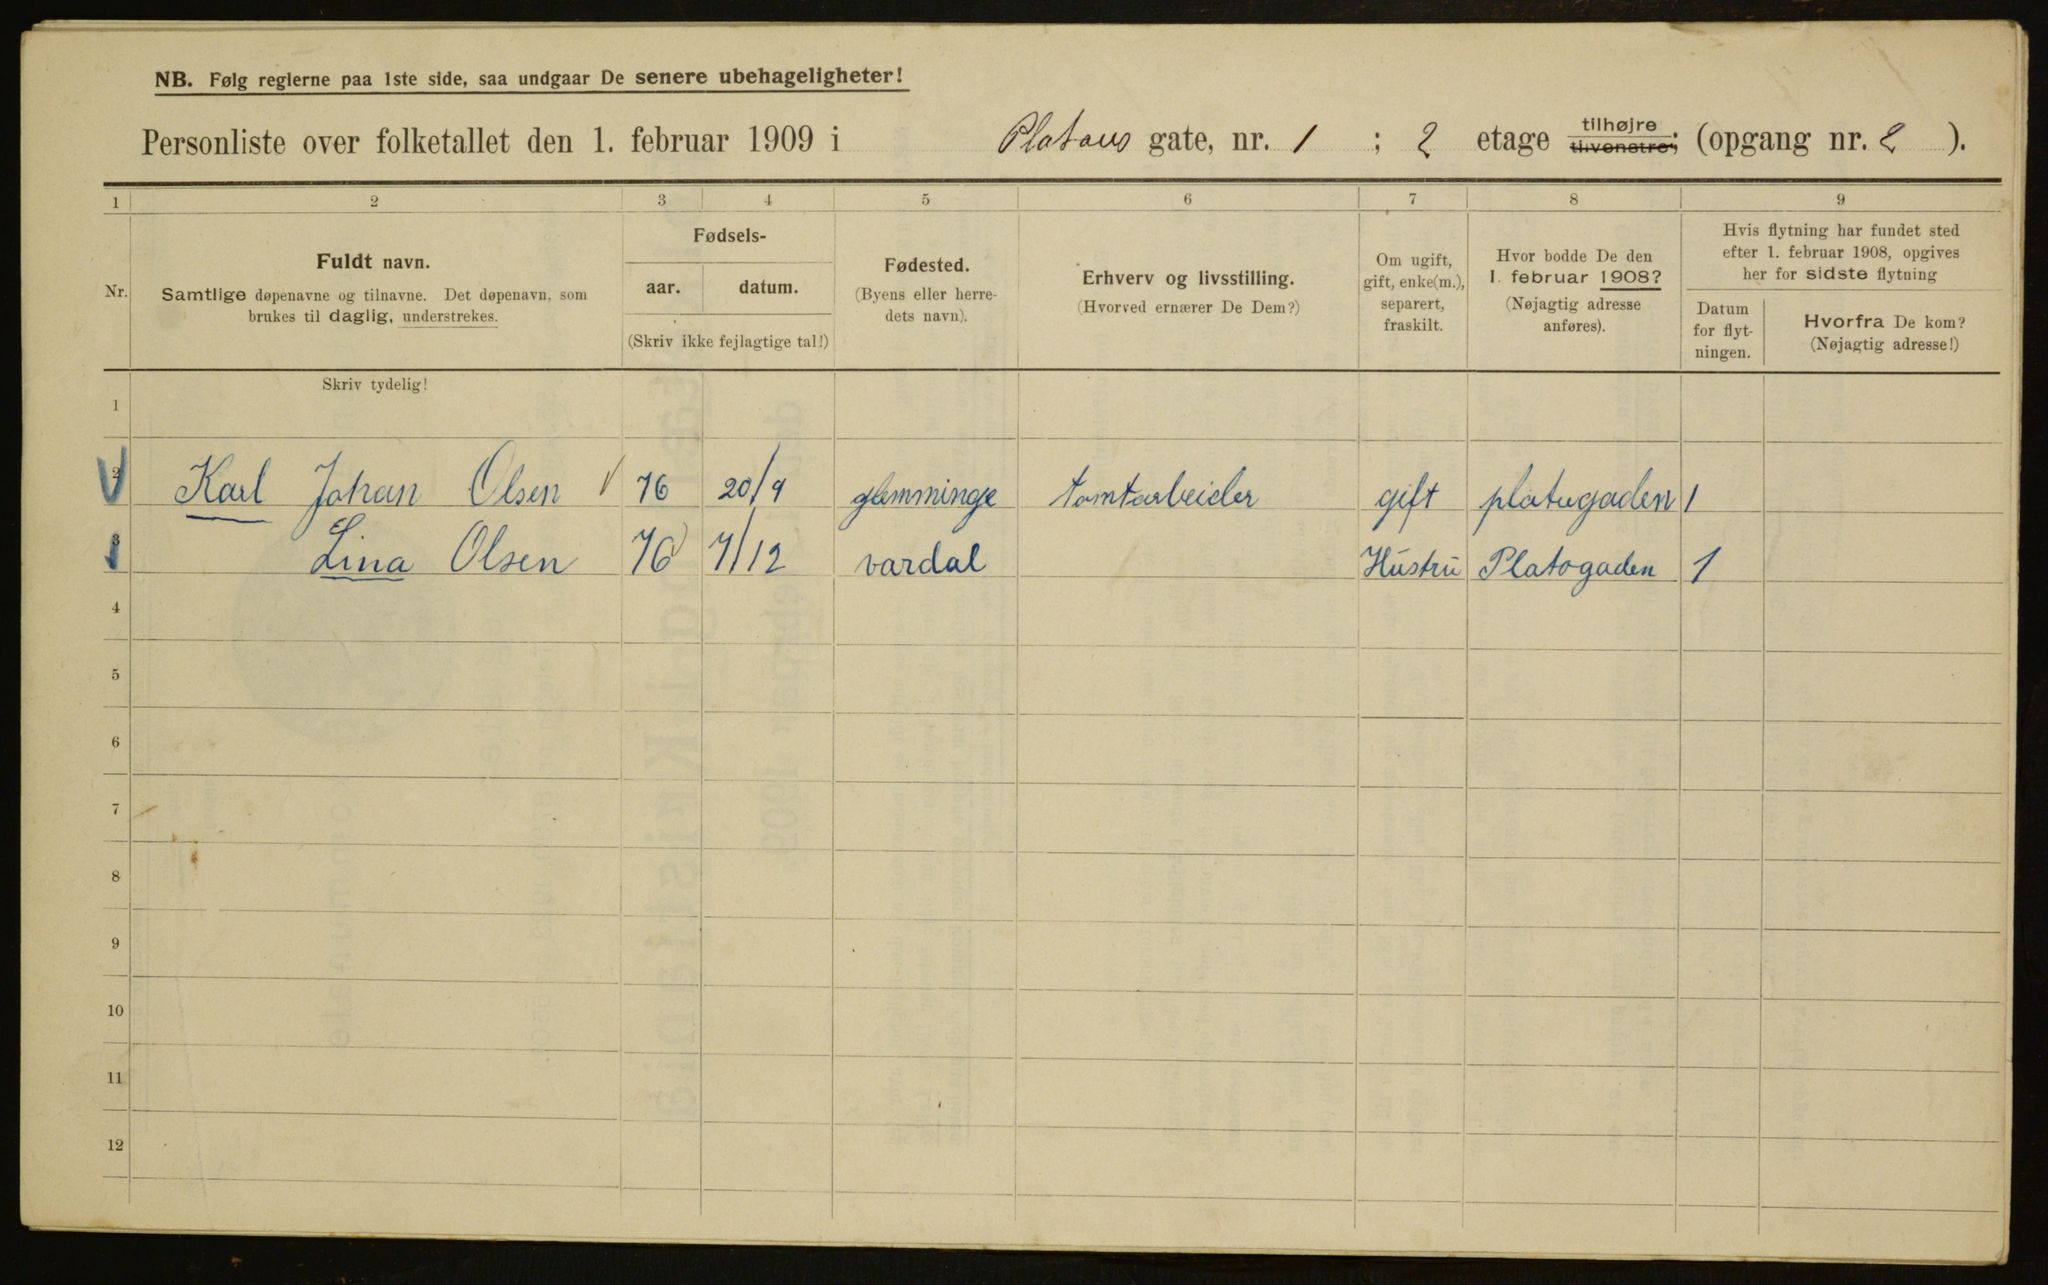 NB. Følg reglerne paa 1ste side, saa undgaar De senere ubehageligheter!
Personliste over folketallet den 1. februar 1909 i Platous gate, nr. 1 ; 2 etage tilhøjre tilvenstre; (opgang nr. 2 ).
1 2 3 4 5 6 7 8 9
Nr.
Fuldt navn.
Samtlige døpenavne og tilnavne. Det døpenavn, som
brukes til daglig, understrekes.
Fødsels-
aar. datum.
(Skriv ikke fejlagtige tal!)
Fødested.
(Byens eller herre-
dets navn).
Erhverv og livsstilling.
(Hvorved ernærer De Dem?)
Om ugift,
gift, enke(m.),
separert,
fraskilt.
Hvor bodde De den
1. februar 1908?
(Nøjagtig adresse
anføres).
Hvis flytning har fundet sted
efter 1. februar 1908, opgives
her for sidste flytning
Datum
for flyt-
ningen.
Hvorfra De kom?
(Nøjagtig adresse!)
Skriv tydelig!
1
2 Karl Johan Olsen 76 20/9 glemminge tomtarbeider gift platugaden 1
3 Lina Olsen 76 7/12 vardal Hustru Platogaden 1
4
5
6
7
8
9
10
11
12